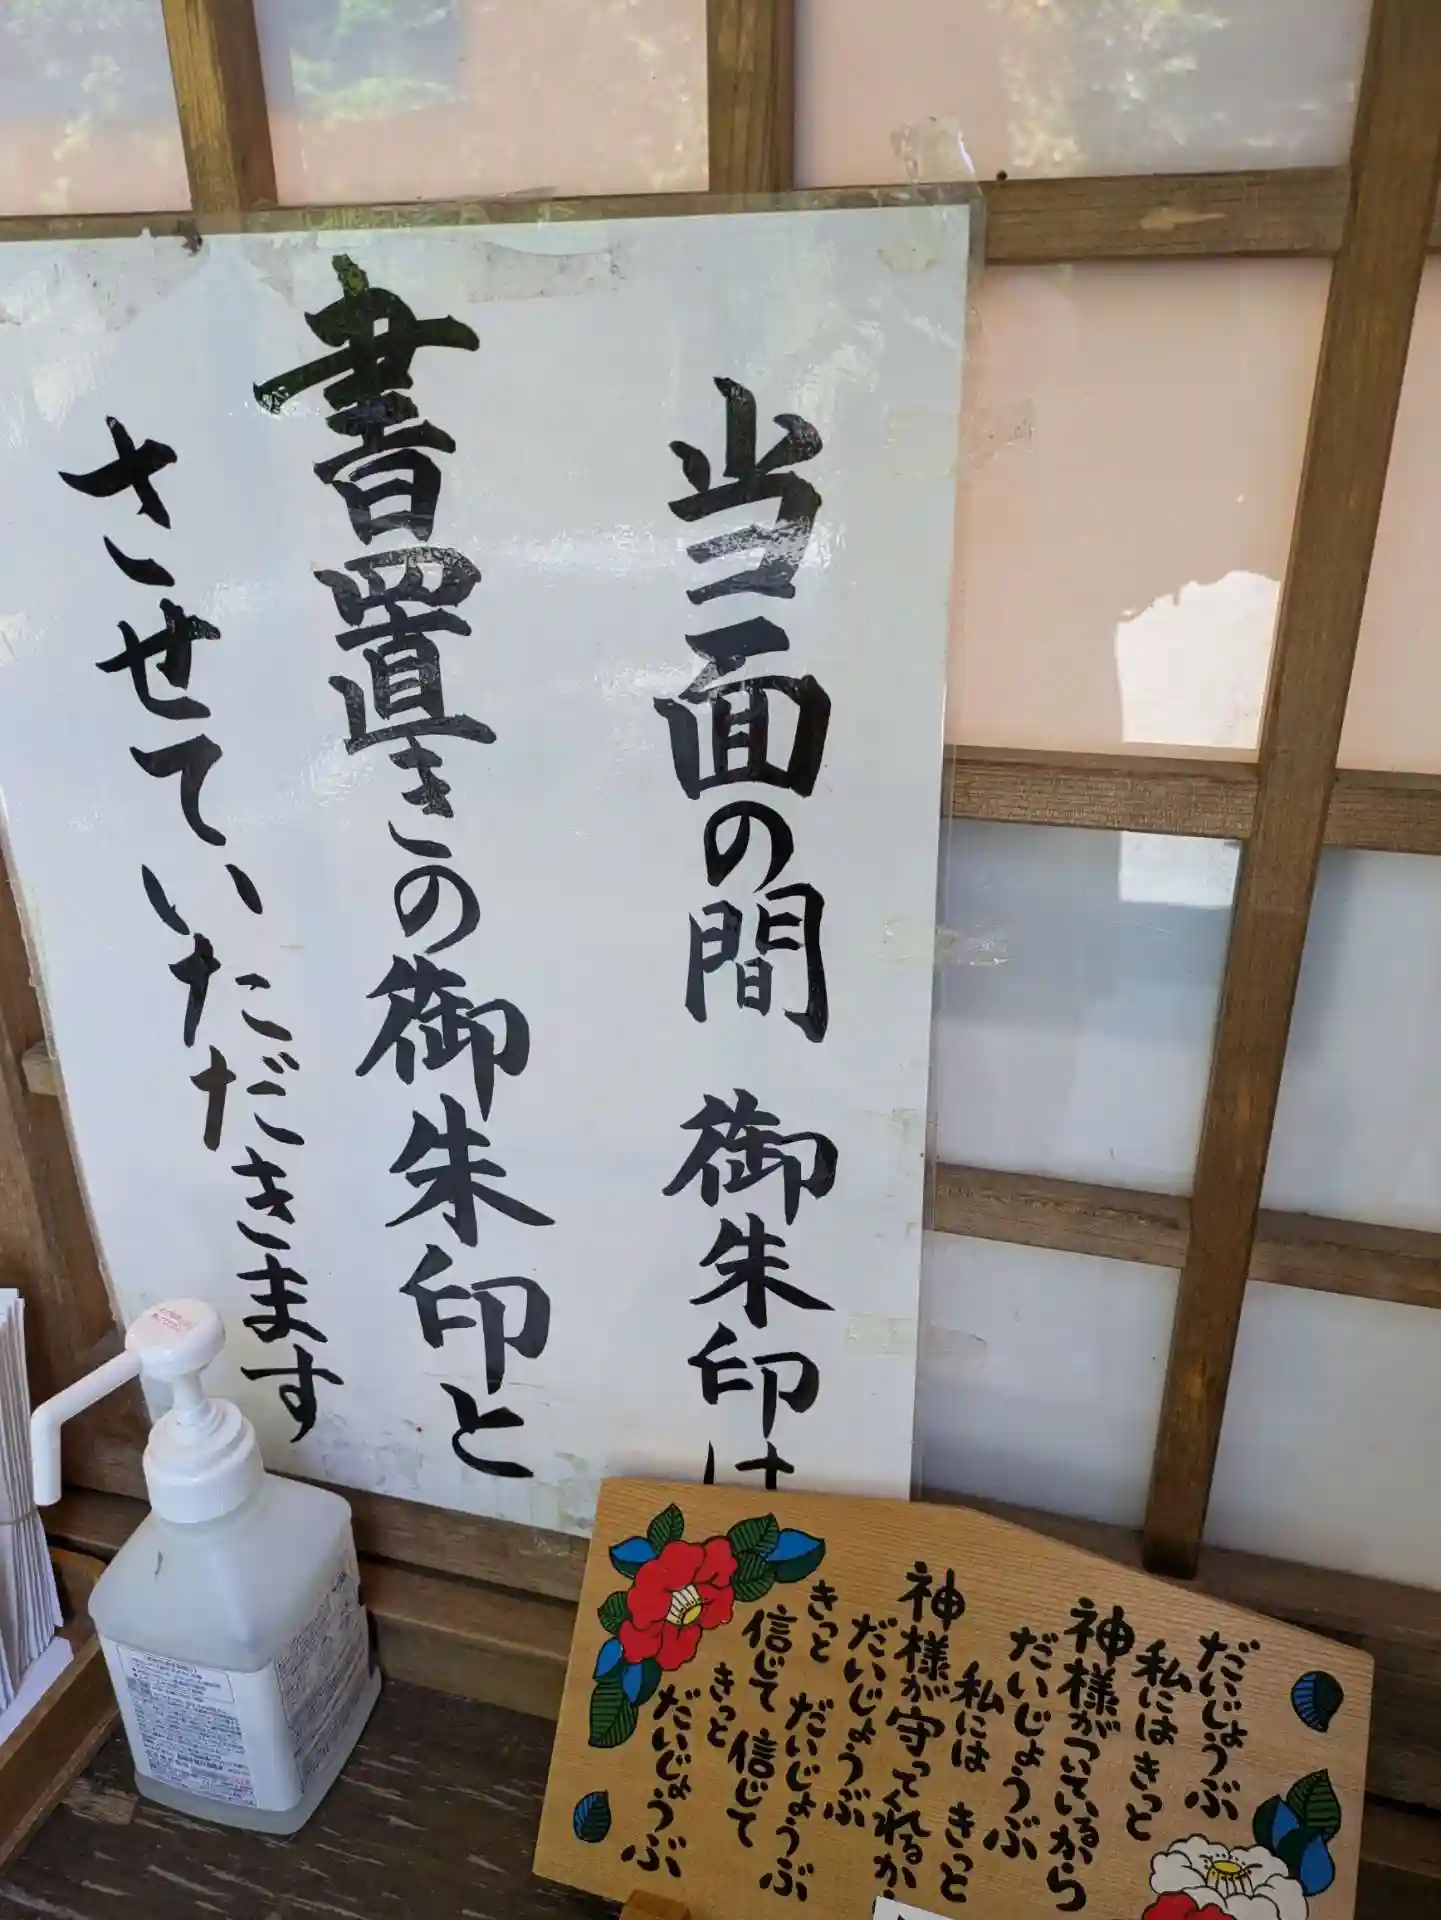 当面の間 御朱印は
書置きの御朱印と
させていただきます
だいじょうぶ
私にはきっと
神様がついているから
だいじょうぶ
私には きっと
神様が守ってくれるから
だいじょうぶ
きっと だいじょうぶ
信じて 信じて
きっと
だいじょうぶ